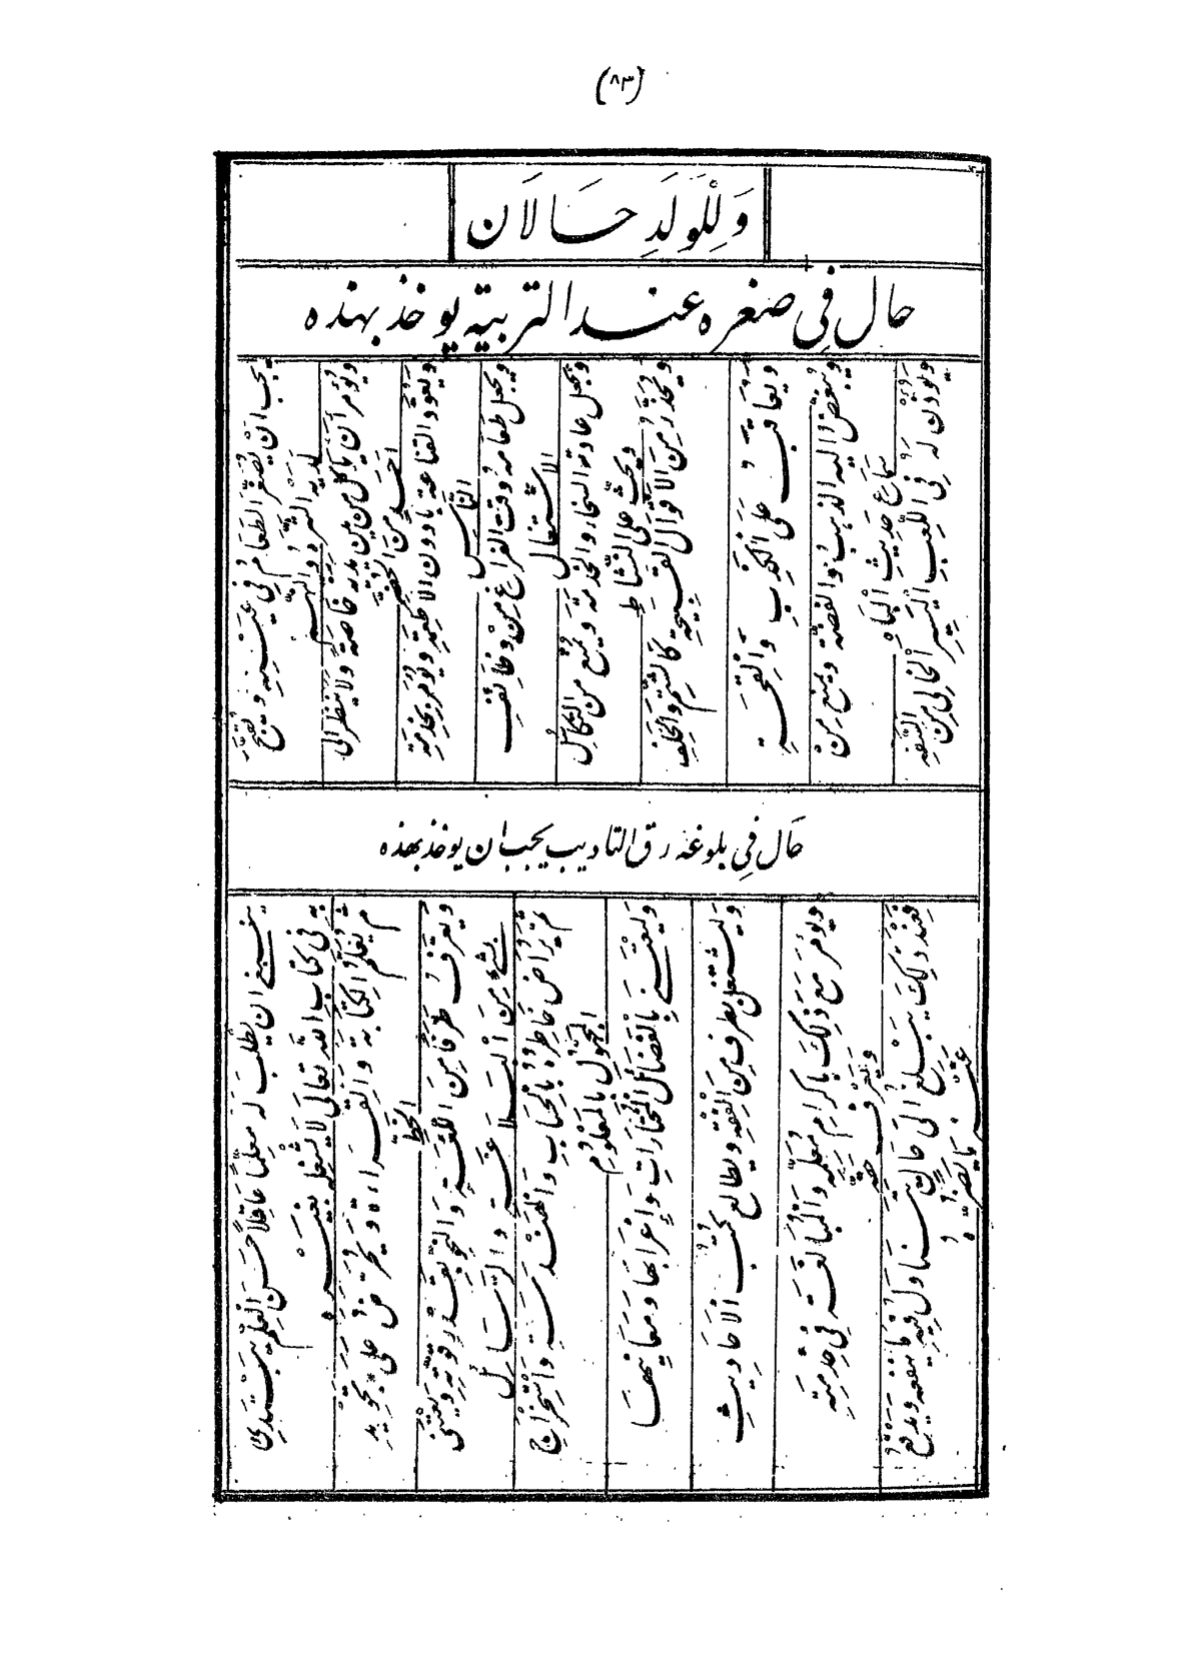 (٨٣)
وَلِلْوَلَدِ حَالَان
حال فِي صغره عند التربية يوخذ بهذه
يجب ان يُصَغّر الطَعَامُ فِي عَيْنِيهِ ويقبح
لَدَيهِ الشره والنهم
ويُؤمر أن ياكل من بين يديه خاصة ولا ينظر الى
احَدٍ مِنَ الحضر
ويعَوّد القناعة بادون الاطعمة ويُؤمر بخدمة
النَّاس
ويجعل طعامه وقت الفراغ مِنْ وظائف
الاشتغال
ويجعل عادته السخاء والخدمة ويمنع من التكاسُل
ويحث على النشاط
ويحذر مِنَ الاقوال القبيحة كالشتم والحلف
ويعَاقَب على الكِذبِ وَالقِحَةِ
ويبغض اليه الذهب والفضة ويمنع مِنْ
سماع حديث الباه
ويؤذن لَهُ فِي اللعِب اليسِير الخالى مِنَ السَفه
حَال فِي بلوغه رق التاديب يجب ان يوخذ بهذه
ينبغي ان يُطْلَبَ لَه معِلماً عَاقِلاً حَسَن العلم يَبْتَدِئ
به في كتاب الله تعالى لا يشغله بغيره
ثم يُعَلَّمُ الكِتَابَةَ والقراءة ويحرّض على تجويد
الخَط
ويعرف طرفًا مِنَ اللغَة والنحو بقدر قوته ويَعْتَنِي
بشيء مِنَ البَلَاغَة والرسَائِل
ثم يُرَاض خَاطِرُهُ بالحِسَابِ وَالهَنْدَسَةِ وَاسْتِخْرَاج
المجهُول بالمَعْلُومِ
وَيَعْتَنِي بالقَصَائِدِ المُخْتَارَاتِ وَإِعْرَابِهَا ومعَانِيهَا
وَيَشْتَغِل بطرف مِنَ الفقه ويطالع كتب الاحَادِيثِ
ويُؤمر مَعَ ذَلِكَ باكرام مُعَلِّمه وَالمُبَالَغَة فِي خِدْمَتِهِ
وَيُعَرَّف حَقّه
فَعِنْدَ ذَلِكَ يَبْلُغُ الى حَال يَتَنَاول فيه مَا ينفعه ويدفع
عَنْهُ مَا يَضُرّهُ